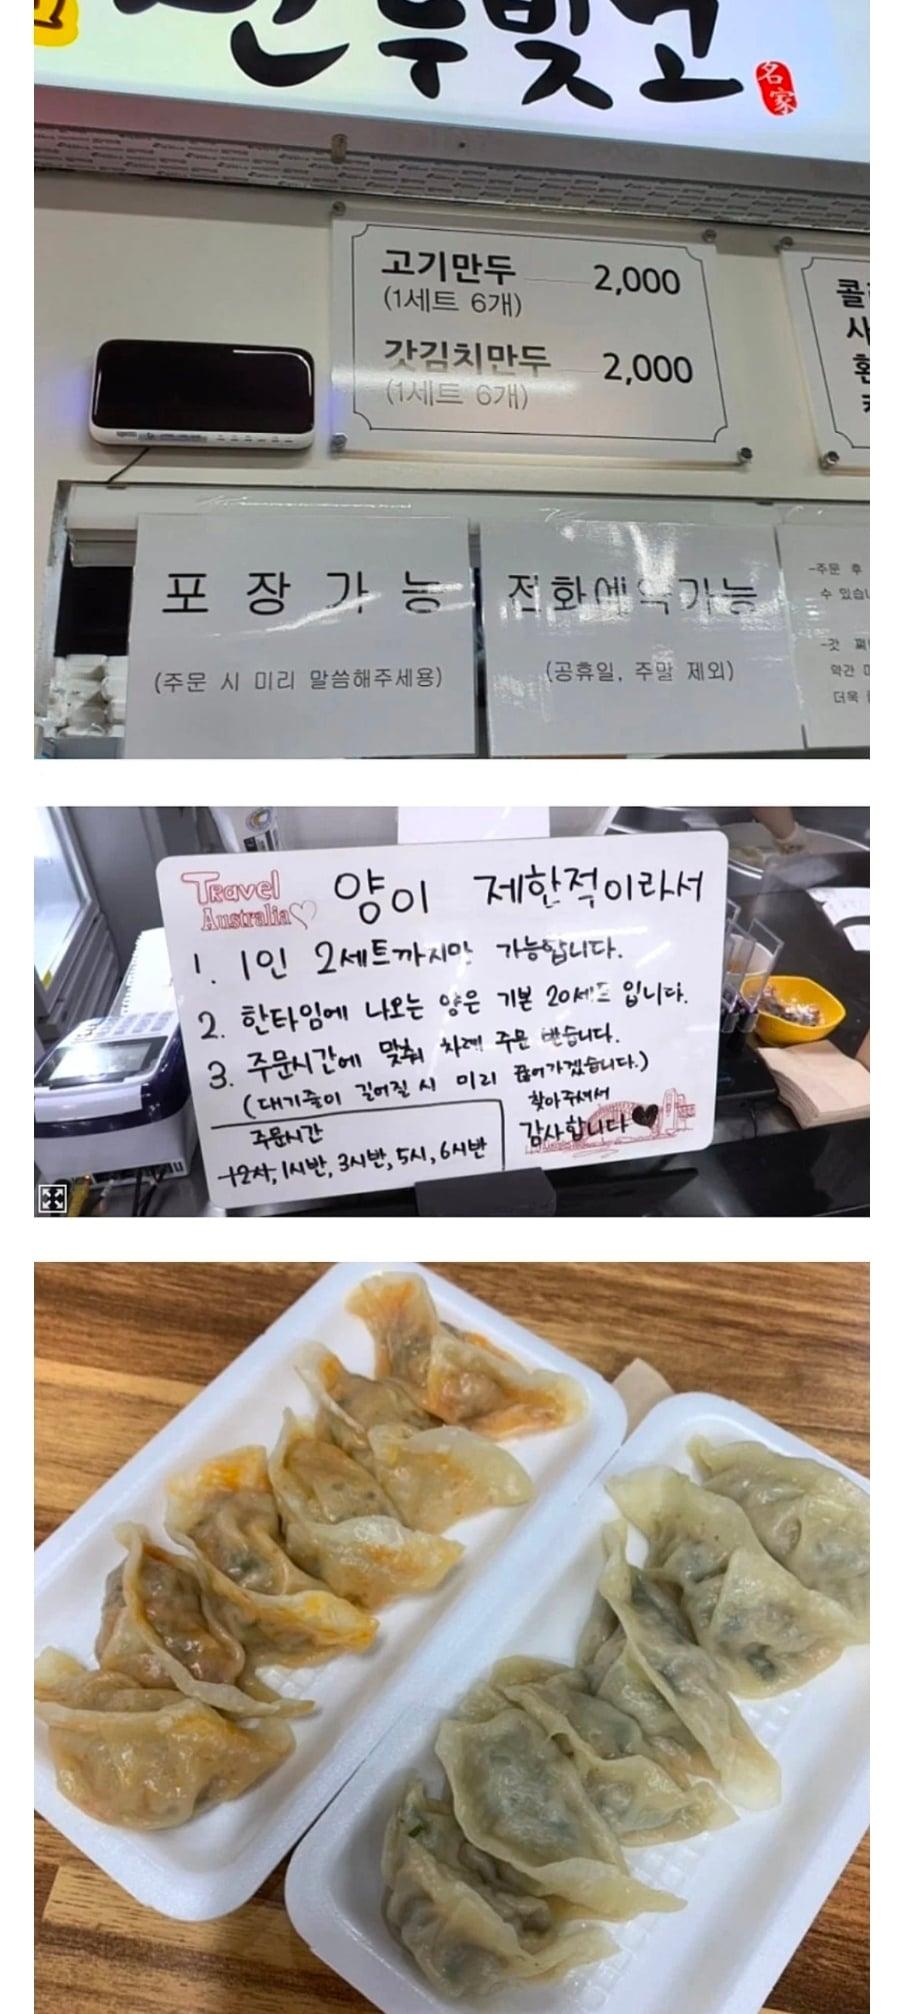 만두빚고
名家
고기만두 2,000
(1세트 6개)
갓김치만두 2,000
(1세트 6개)
포장가능
(주문 시 미리 말씀해주세용)
전화예약가능
(공휴일, 주말 제외)
-주문 후
-갓
약간
더욱
Travel
Australia
양이 제한적이라서
1. 1인 2세트까지만 가능합니다.
2. 한타임에 나오는 양은 기본 20세트 입니다.
3. 주문시간에 맞춰 차례 주문 받습니다.
(대기줄이 길어질 시 미리 끊어가겠습니다.)
주문시간
12시, 1시반, 3시반, 5시, 6시반
찾아주셔서
감사합니다